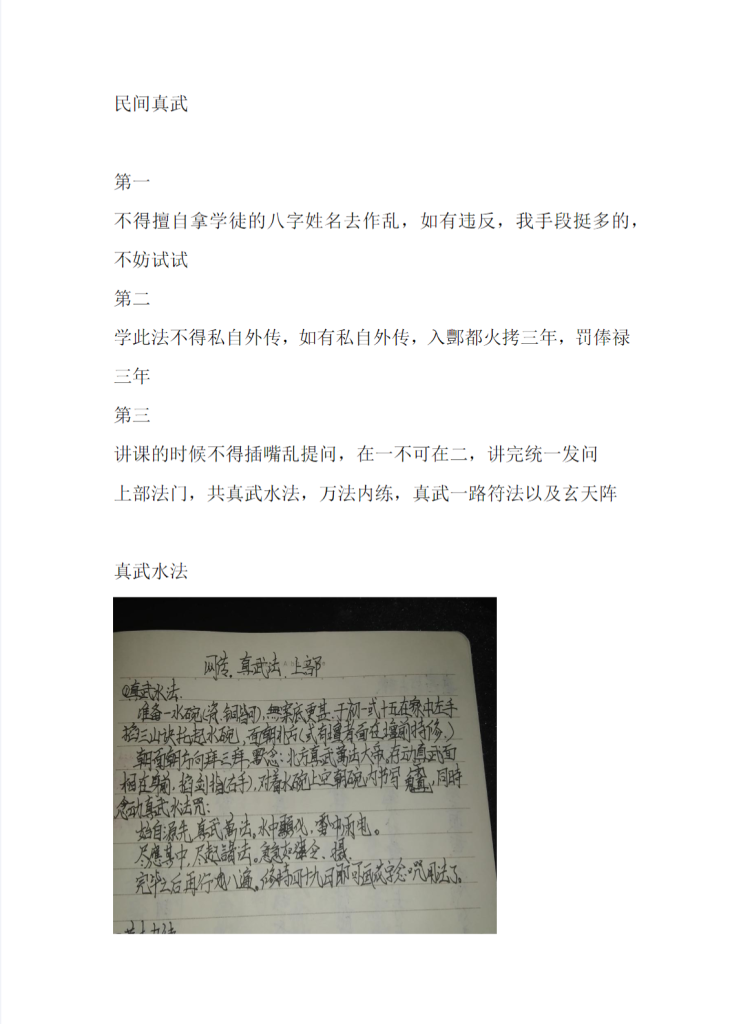 民间真武
第一
不得擅自拿学徒的八字姓名去作乱，如有违反，我手段挺多的，
不妨试试
第二
学此法不得私自外传，如有私自外传，入酆都火拷三年，罚俸禄
三年
第三
讲课的时候不得插嘴乱提问，在一不可在二，讲完统一发问
上部法门，共真武水法，万法内练，真武一路符法以及玄天阵
真武水法
网传.真武法.上部
①真武水法.
准备一水碗(瓷.铜皆可),無案底更甚.于初一或十五在家中左手
掐三山诀托起水碗，面朝北方(或有壇者面在壇前持修.)
朝面朝方向拜三拜.默念:北方真武萬法大帝.存动真武面
相在身前.掐剑指(右手),对着水碗上空朝碗内书写 同时
念动真武水法咒:
始自源先.真武萬法.水中顯化,雷中雨电。
尽應其中,尽起諸法。急急如律令.攝
完毕之后再行 八遍。修持四十九日即可画 字念咒用法了.